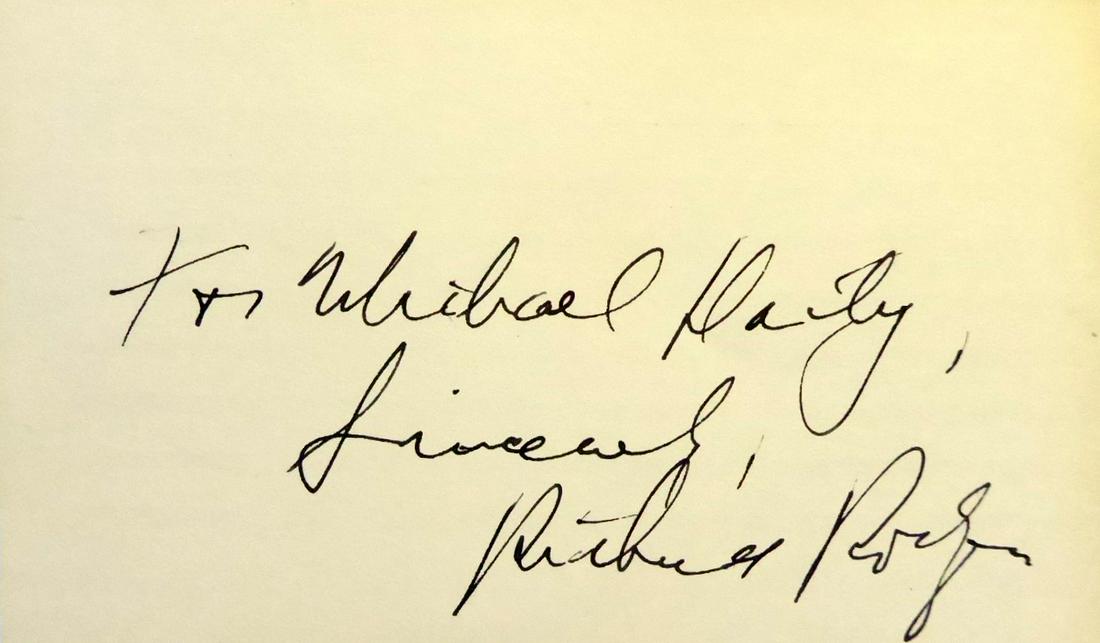 For Michael Harty,
Sincerely,
Richard Rodgers